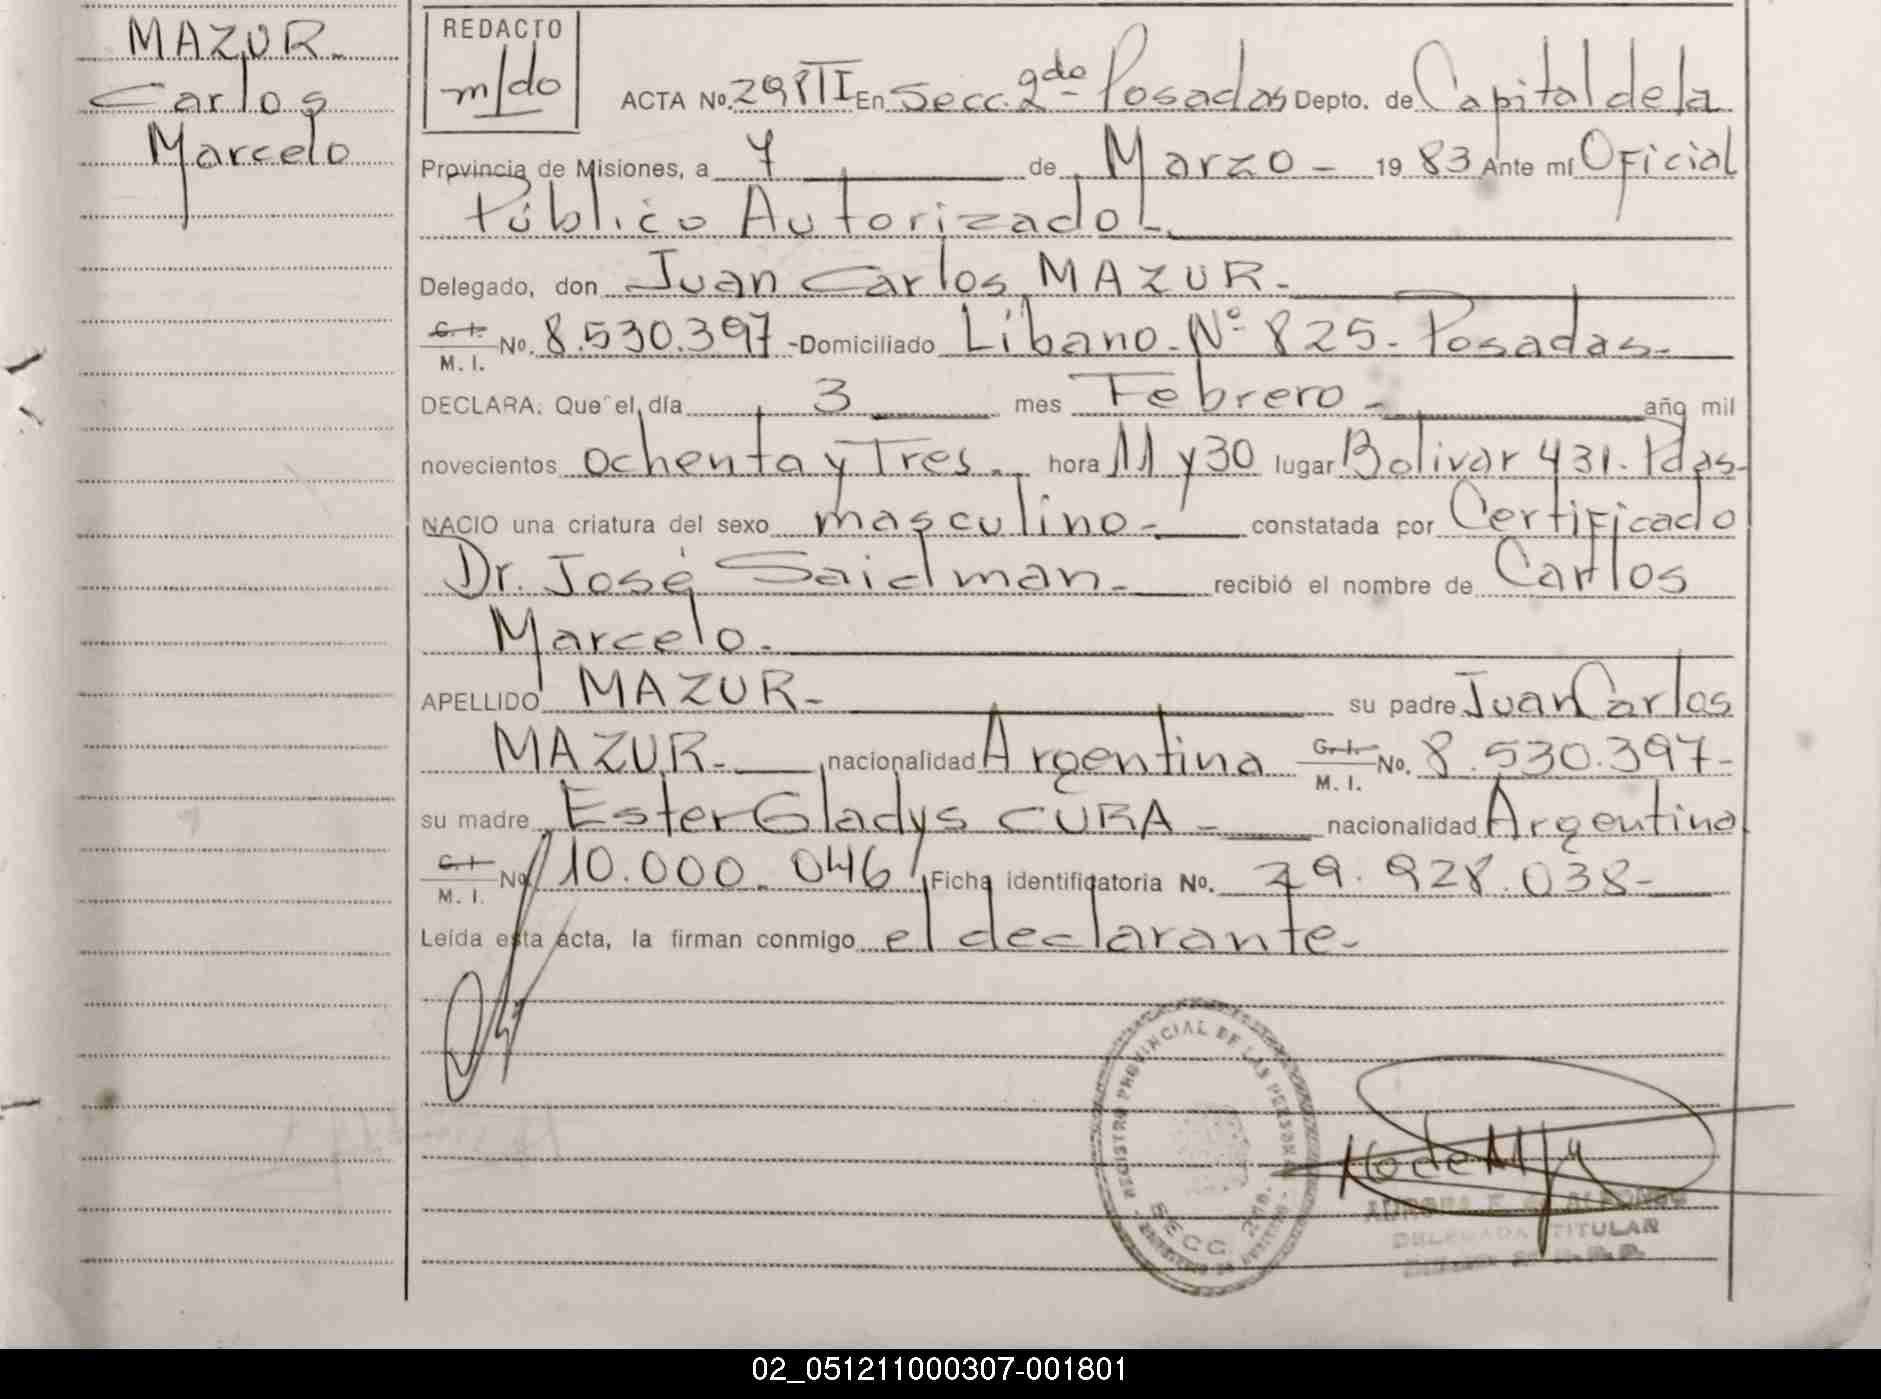 MAZUR-
Carlos
Marcelo
REDACTO
m/do
ACTA No. 298 III En Secc. 2da Posadas Depto. de Capital de la
Provincia de Misiones, a 7 de Marzo - 19 83 Ante mí Oficial
Público Autorizado -
Delegado, don Juan Carlos MAZUR-
C. I.
M. I. No. 8.530.397 - Domiciliado Líbano - Nº 825 - Posadas-
DECLARA: Que el día 3 mes Febrero - año mil
novecientos ochenta y Tres - hora 11 y 30 lugar Bolivar 431. Pdas-
NACIO una criatura del sexo masculino - constatada por Certificado
Dr. José Saidman - recibió el nombre de Carlos
Marcelo -
APELLIDO MAZUR - su padre Juan Carlos
MAZUR - nacionalidad Argentina C. I. M. I. No. 8.530.397-
su madre Ester Gladys CURA - nacionalidad Argentina
C. I. M. I. No. 10.000.046 Ficha identificatoria No. 29.928.038-
Leída esta acta, la firman conmigo el declarante -
REGISTRO PROVINCIAL DE LAS PERSONAS
SECC. 2da.
DELEGADA TITULAR
02_051211000307-001801